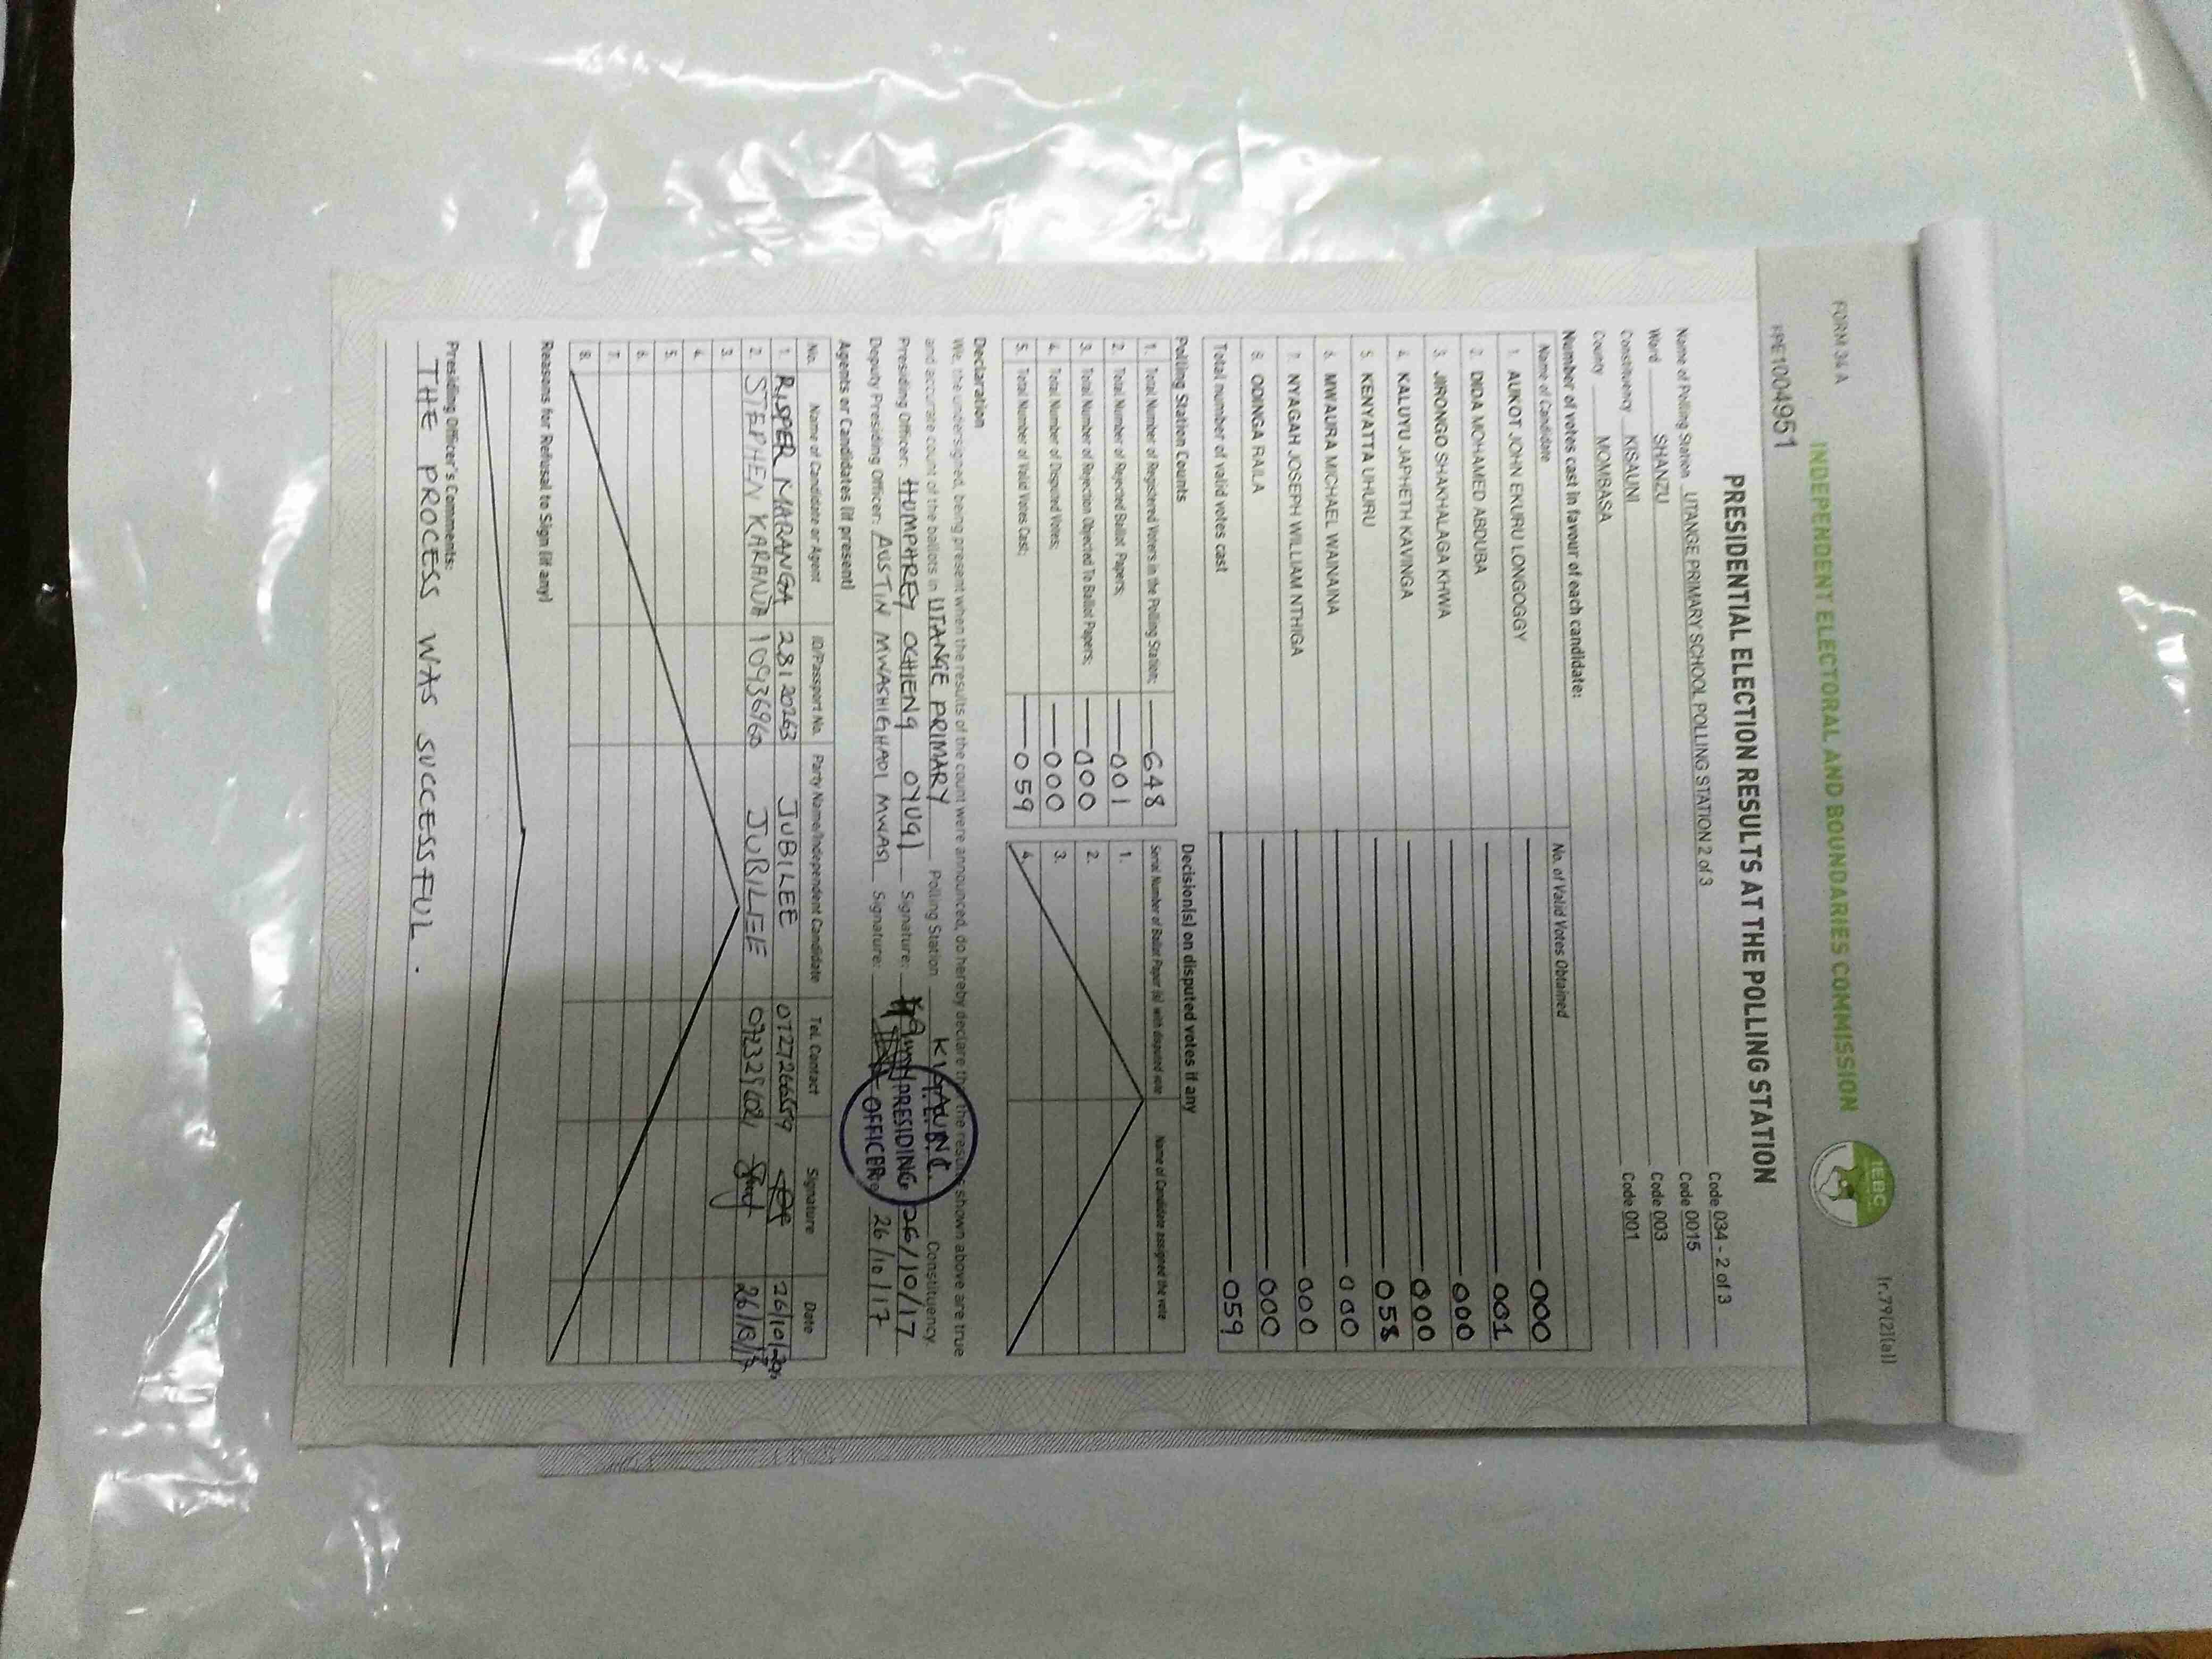 FORM 34 A
Ir.79(2)(a)
INDEPENDENT ELECTORAL AND BOUNDARIES COMMISSION
IEBC
PPE1004951
PRESIDENTIAL ELECTION RESULTS AT THE POLLING STATION
Name of Polling Station UTANGE PRIMARY SCHOOL POLLING STATION 2 of 3 Code 034 - 2 of 3
Ward SHANZU Code 0015
Constituency KISAUNI Code 003
County MOMBASA Code 001
Number of votes cast in favour of each candidate:
Name of Candidate No. of Valid Votes Obtained
1. AUKOT JOHN EKURU LONGOGGY 000
2. DIDA MOHAMED ABDUBA 001
3. JIRONGO SHAKHALAGA KHWA 000
4. KALUYU JAPHETH KAVINGA 000
5. KENYATTA UHURU 058
6. MWAURA MICHAEL WAINAINA 000
7. NYAGAH JOSEPH WILLIAM NTHIGA 000
8. ODINGA RAILA 000
Total number of valid votes cast 059
Polling Station Counts
1. Total Number of Registered Voters in the Polling Station; 648
2. Total Number of Rejected Ballot Papers; 001
3. Total Number of Rejection Objected To Ballot Papers; 000
4. Total Number of Disputed Votes; 000
5. Total Number of Valid Votes Cast; 059
Decision(s) on disputed votes if any
Serial Number of Ballot Paper (s) with disputed vote Name of Candidate assigned the vote
1.
2.
3.
4.
Declaration
We, the undersigned, being present when the results of the count were announced, do hereby declare that the results shown above are true
and accurate count of the ballots in UTANGE PRIMARY Polling Station KISAUNI Constituency.
Presiding Officer: HUMPHREY OCHIENG OYUGI Signature: 26/10/17
Deputy Presiding Officer: AUSTIN MWASHIGHADI MWASI Signature: 26/10/17
PRESIDING
OFFICER
Agents or Candidates (if present)
No. Name of Candidate or Agent ID/Passport No. Party Name/Independent Candidate Tel. Contact Signature Date
1. RISPER MARANGA 28120263 JUBILEE 26/10/
2. STEPHEN KARANJA 10936960 JUBILEE 26/10/17
3.
4.
5.
6.
7.
8.
Reasons for Refusal to Sign (if any)
Presiding Officer's Comments:
THE PROCESS WAS SUCCESSFUL.